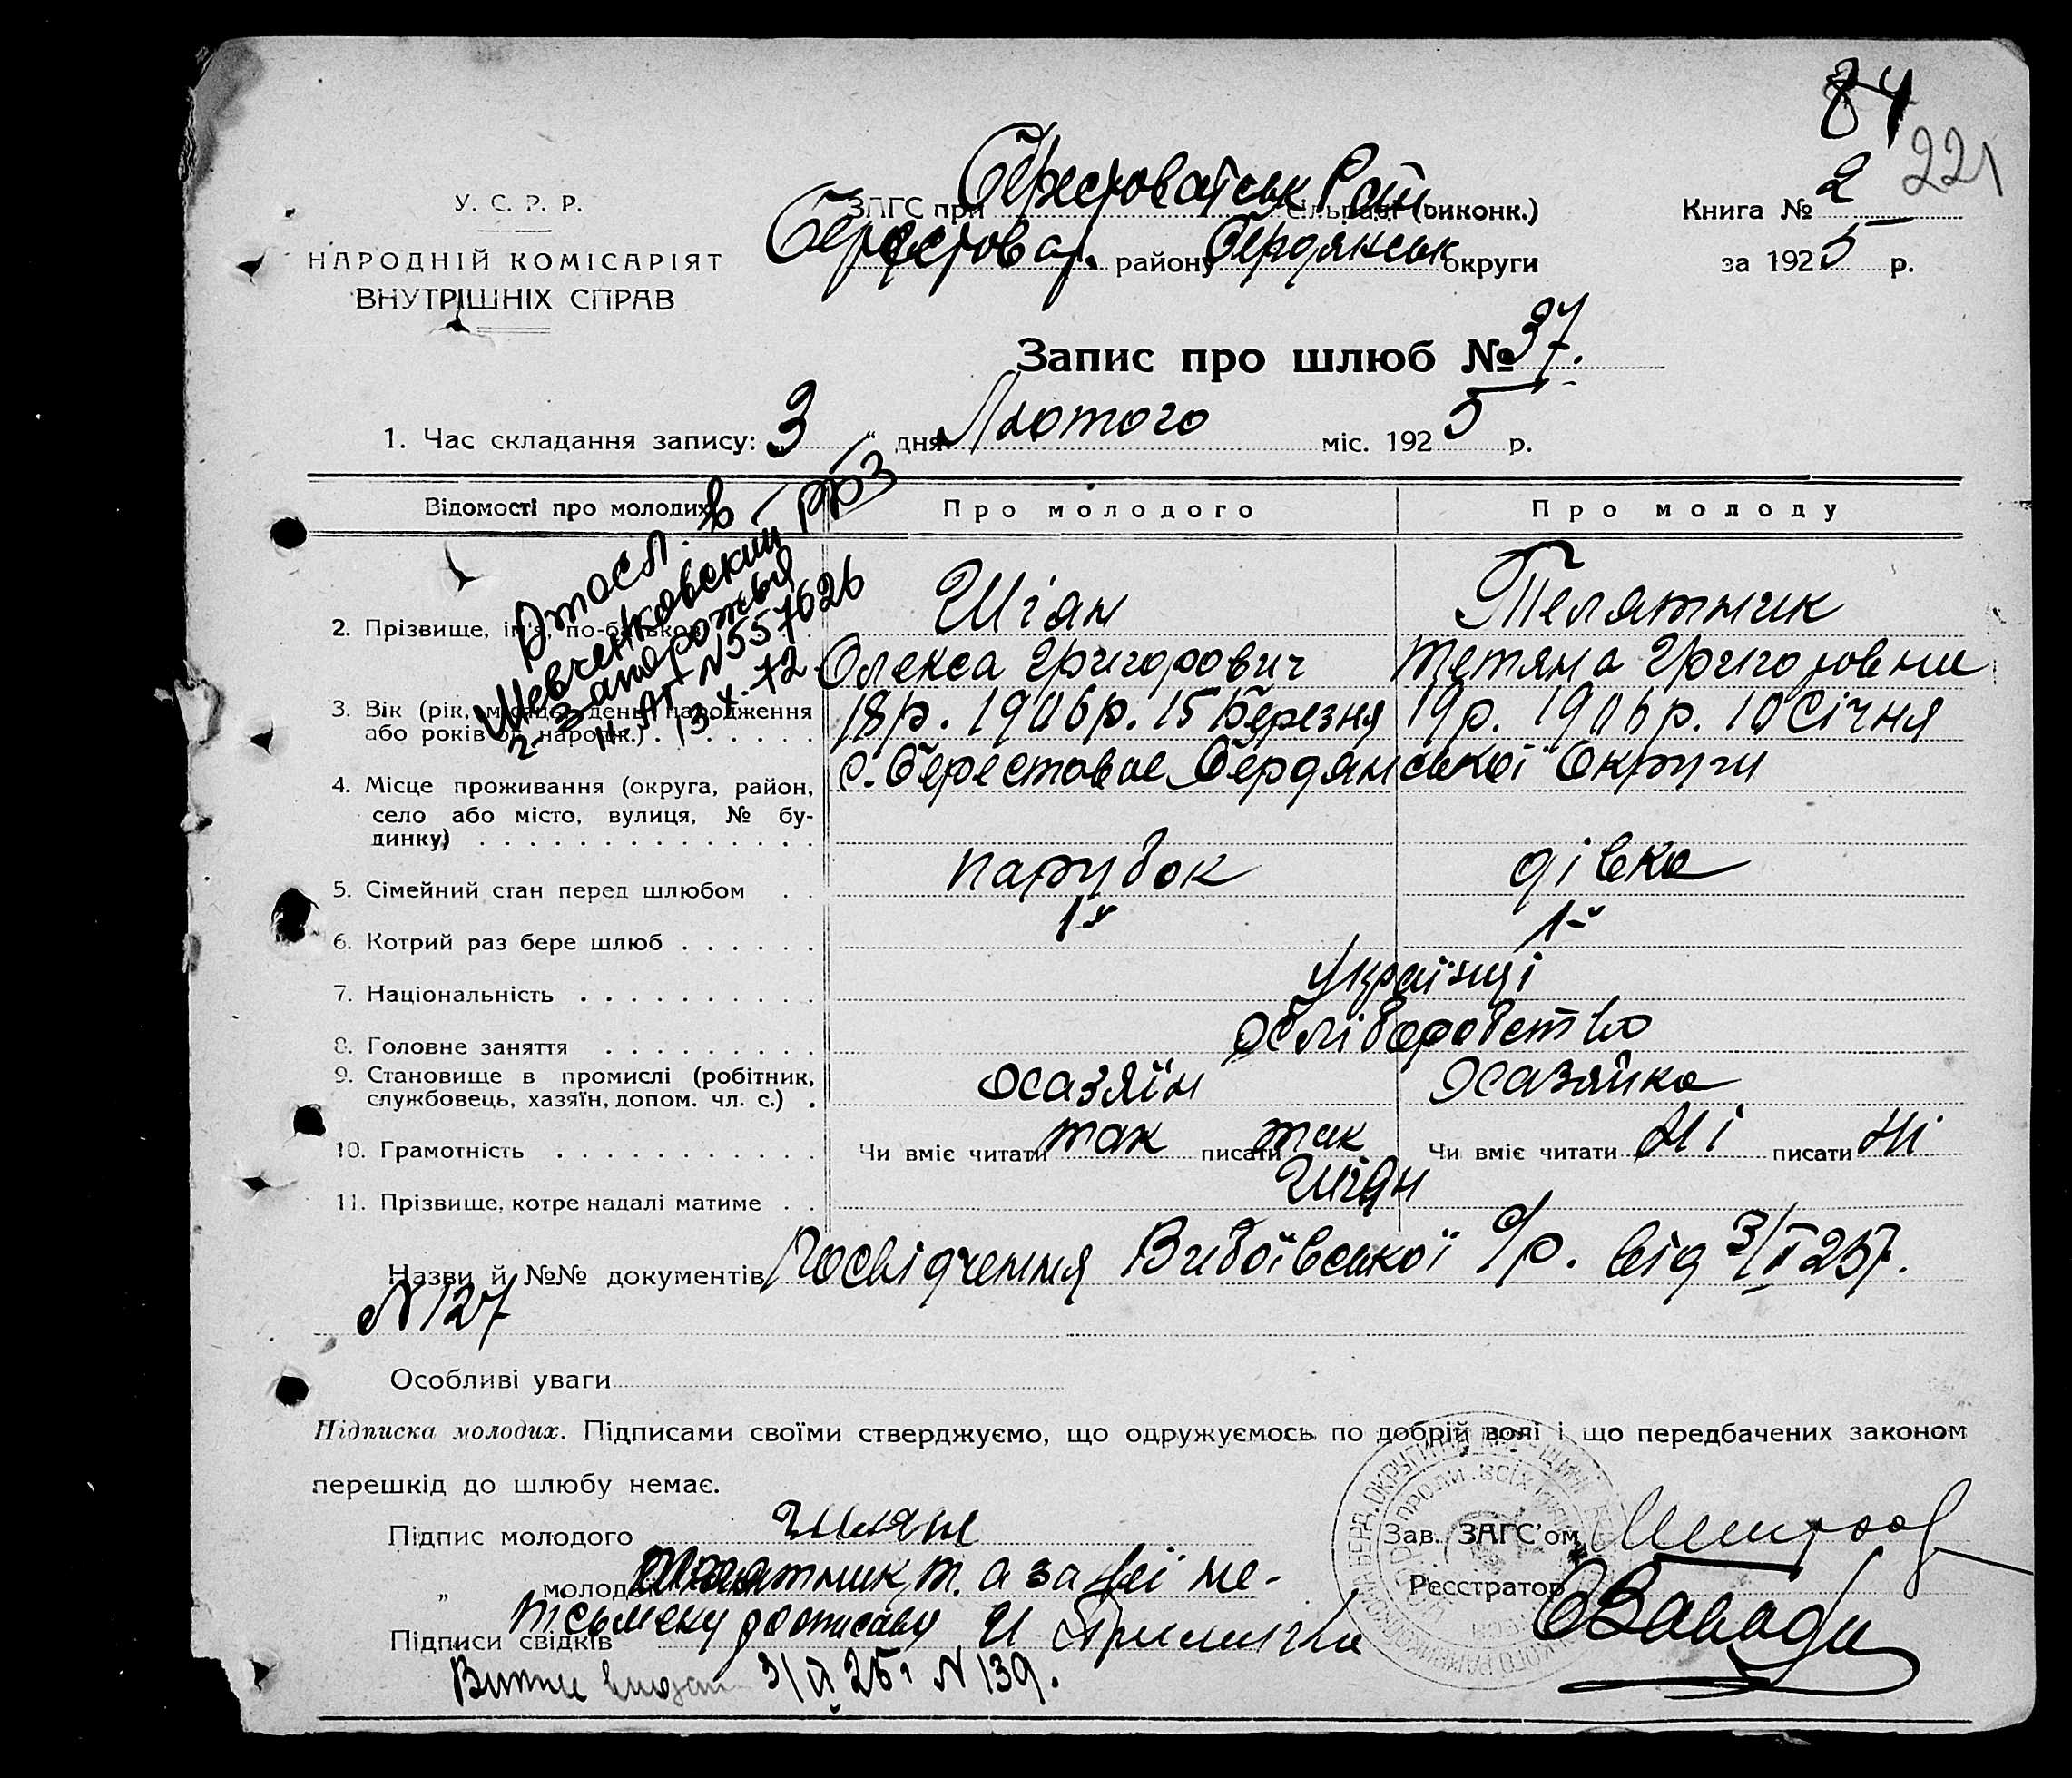 84
221
У. С. Р. Р.
НАРОДНІЙ КОМІСАРІЯТ
ВНУТРІШНІХ СПРАВ
ЗАГС при Берестоватськ Рай Сільради (виконк.)
Берестоват. району Бердянськ округи
Книга № 2
за 1925 р.
Запис про шлюб № 37.
1. Час складання запису: 3 " дня Лютого міс. 1925 р.
Відомості про молодих
Про молодого
Про молоду
Отосл. в
Шевченковский РБЗ
г. Запорожья
н. АГ N 557626
13.X.72
2. Прізвище, ім'я, по-батькові
Шіан
Олекса Григорович
Телятник
Тетяна Григоровни
3. Вік (рік, місяць, день народження
або років від народж.)
18р. 1906р. 15 Березня
19р. 1906р. 10 Січня
4. Місце проживання (округа, район,
село або місто, вулиця, № бу-
динку)
с. Берестовое Бердянської Округи
5. Сімейний стан перед шлюбом
парубок
дівка
6. Котрий раз бере шлюб
1й
1й
7. Національність
Українці
8. Головне заняття
хліборобство
9. Становище в промислі (робітник,
службовець, хазяїн, допом. чл. с.)
хазяїн
хазяйка
10. Грамотність
Чи вміє читати так писати так
Чи вміє читати Ні писати Ні
11. Прізвище, котре надалі матиме
Шіян
Назви й №№ документів Посвідчення С/р. від 3/II 25р.
N 127
Особливі уваги
Підписка молодих. Підписами своїми стверджуємо, що одружуємось по добрій волі і що передбачених законом
перешкід до шлюбу немає.
Підпис молодого Шиян
" молодої Телятник, т. а за неї не-
письмену росписавсь И
Підписи свідків
Зав. ЗАГС'ом
Реєстратор
Витяг видан 3/II 25р N 139.